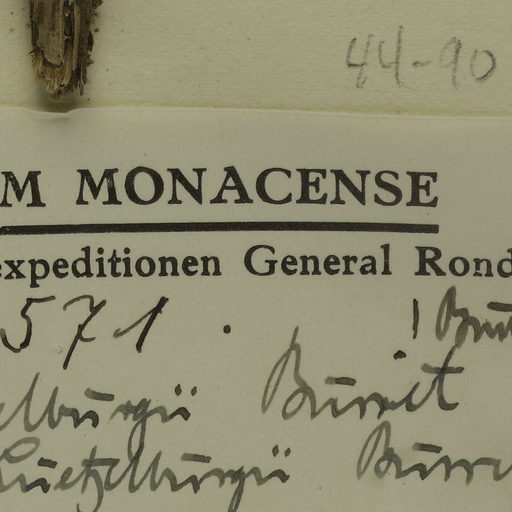 44-90
M MONACENSE
expeditionen General Rond
571.
elburgii Burret
Luetzelburgii Burre